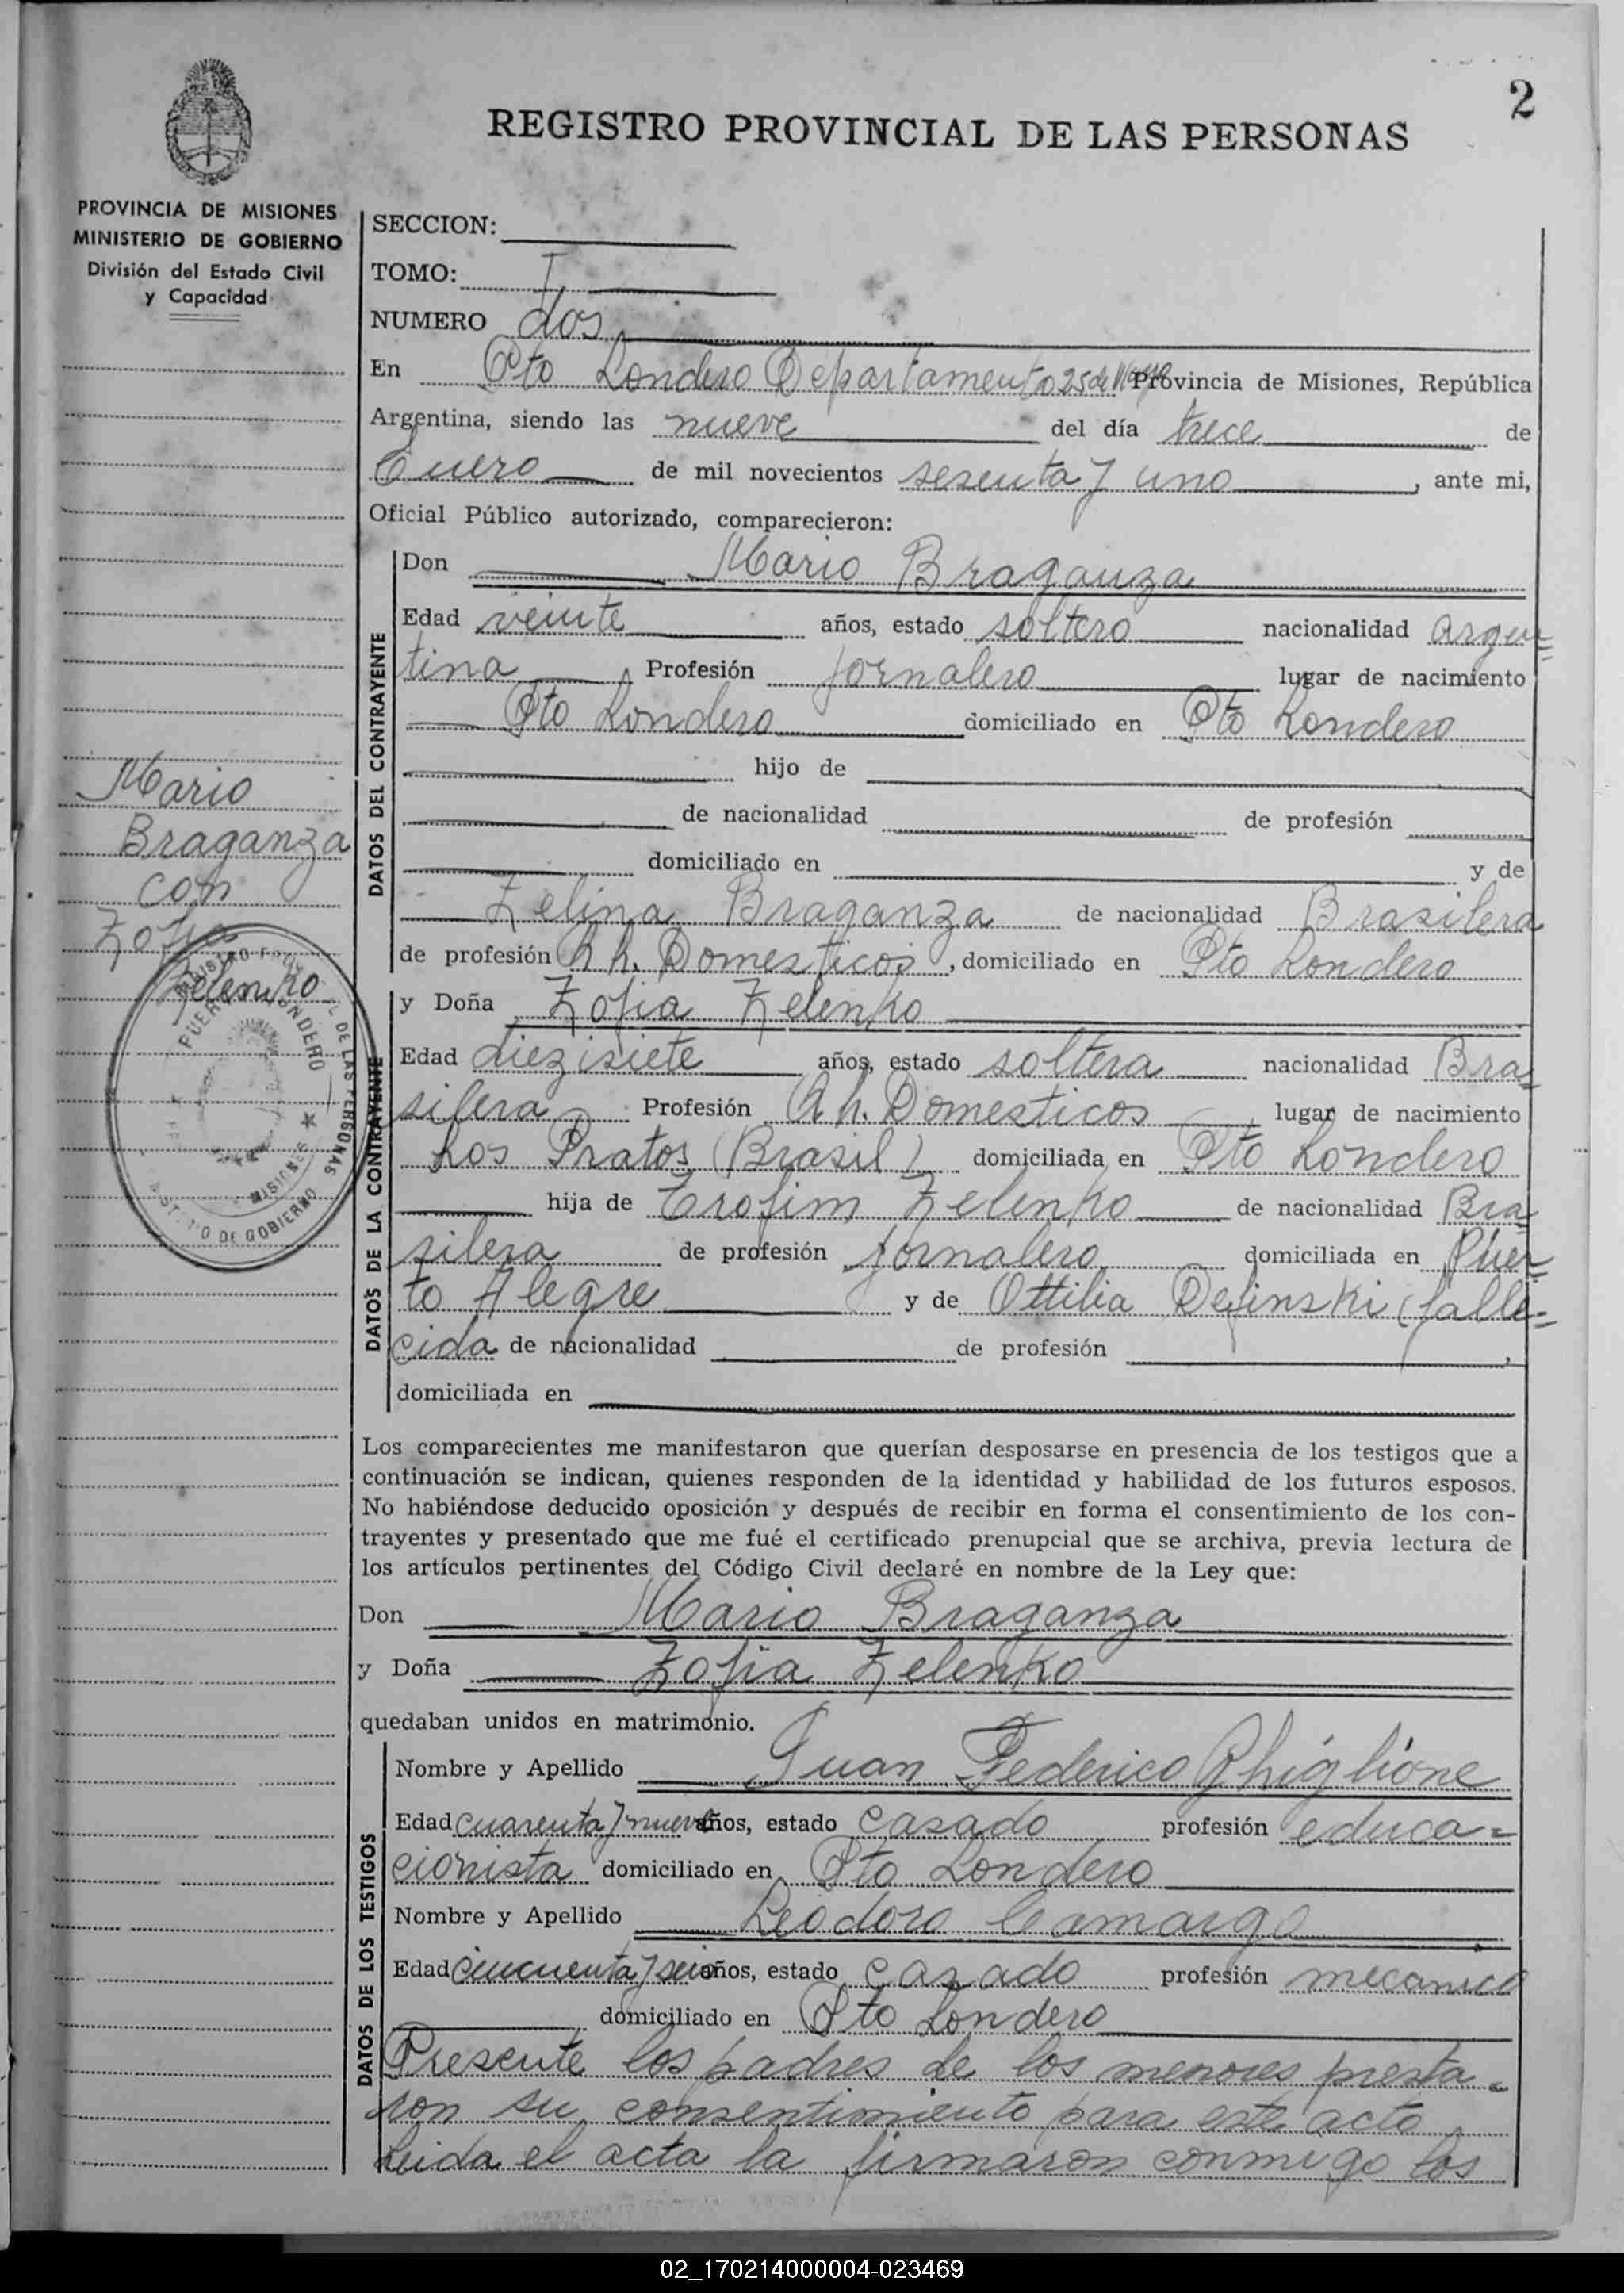 2
REGISTRO PROVINCIAL DE LAS PERSONAS
PROVINCIA DE MISIONES
MINISTERIO DE GOBIERNO
División del Estado Civil
y Capacidad
SECCION:
TOMO: I
NUMERO dos
En Pto Londero Departamento 25 de Mayo Provincia de Misiones, República
Argentina, siendo las nueve del día trece de
Enero de mil novecientos sesenta y uno, ante mi,
Oficial Público autorizado, comparecieron:
DATOS DEL CONTRAYENTE
Don Mario Braganza
Edad veinte años, estado soltero nacionalidad Argen=
tina Profesión jornalero lugar de nacimiento
Pto Londero domiciliado en Pto Londero
hijo de
de nacionalidad de profesión
domiciliado en y de
Zelina Braganza de nacionalidad Brasilera
de profesión Q. h. Domesticos, domiciliado en Pto Londero
Mario
Braganza
con
Zofia
Zelenko
PUERTO LONDERO
MISIONES
MINISTERIO DE GOBIERNO
DATOS DE LA CONTRAYENTE
y Doña Zofia Zelenko
Edad diezisiete años, estado soltera nacionalidad Bra=
silera Profesión Q. h. Domesticos lugar de nacimiento
Los Pratos (Brasil) domiciliada en Pto Londero
hija de Trofim Zelenko de nacionalidad Bra=
silera de profesión jornalero domiciliada en Puer=
to Alegre y de Ottilia Definski (falle=
cida de nacionalidad de profesión ,
domiciliada en
Los comparecientes me manifestaron que querían desposarse en presencia de los testigos que a
continuación se indican, quienes responden de la identidad y habilidad de los futuros esposos.
No habiéndose deducido oposición y después de recibir en forma el consentimiento de los con-
trayentes y presentado que me fué el certificado prenupcial que se archiva, previa lectura de
los artículos pertinentes del Código Civil declaré en nombre de la Ley que:
Don Mario Braganza
y Doña Zofia Zelenko
quedaban unidos en matrimonio.
DATOS DE LOS TESTIGOS
Nombre y Apellido Juan Federico Ghiglione
Edad cuarenta y nueve años, estado casado profesión educa=
cionista domiciliado en Pto Londero
Nombre y Apellido Leodoro Camargo
Edad cincuenta y seis años, estado casado profesión mecanico
domiciliado en Pto Londero
Presente los padres de los menores presta=
ron su consentimiento para este acto
Leida el acta la firmaron conmigo los
02_170214000004-023469